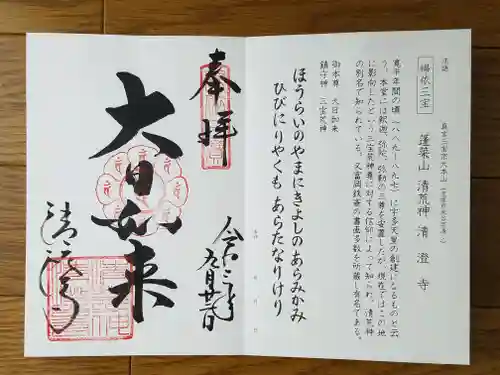 真言三宝宗大本山
帰依三宝 蓬莱山 清荒神 清澄寺
寛平年間の頃(八八九〜八九七)に宇多天皇の創建になるものと云
う。本堂には釈迦、弥陀、弥勒の三尊を安置したが、現在ではこの地
に影向したという三宝荒神尊に対する信仰によって知られ、清荒神
の別名で知られている。又富岡鉄斎の書画多数を所蔵し有名である。
御本尊 大日如来
鎮守神 三宝荒神
ほうらいのやまにきよしのあらみかみ
ひびにりやくも あらたなりけり
年 月 日
奉拝
令和三年
大日如来
清澄寺